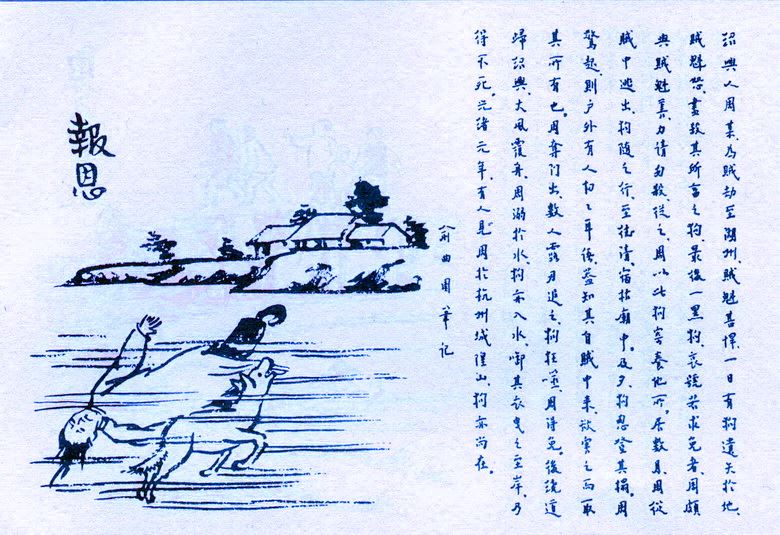 紹興人周某、為賊劫至湖州、賊魁喜潔、一日有狗遺矢於地、
賊魁怒、盡殺其所畜之狗、最後一黑狗、哀號若求免者、周頗
與賊魁善、力請勿殺、從之、周以此狗寄養他所。居數月、周從
賊中逃出、狗隨之行、至德清、宿枯廟中。及夕、狗忽登其榻。周
驚起、則戶外有人切切耳語、蓋知其自賊中來、欲害之而取
其所有也。周奪門出、數人露刃追之、狗狂噬、周得免。後繞道
歸紹興、大風覆舟、周溺於水、狗亦入水、啣其衣曳之至岸、乃
得不死。光緒元年、有人見周於杭州城隍山、狗亦尚在。
俞曲園筆記
報恩